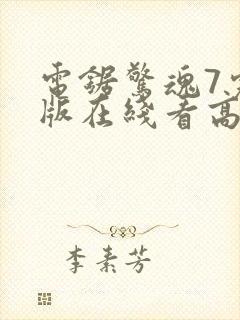 電鋸驚魂7完
版在綫看高
李素芳